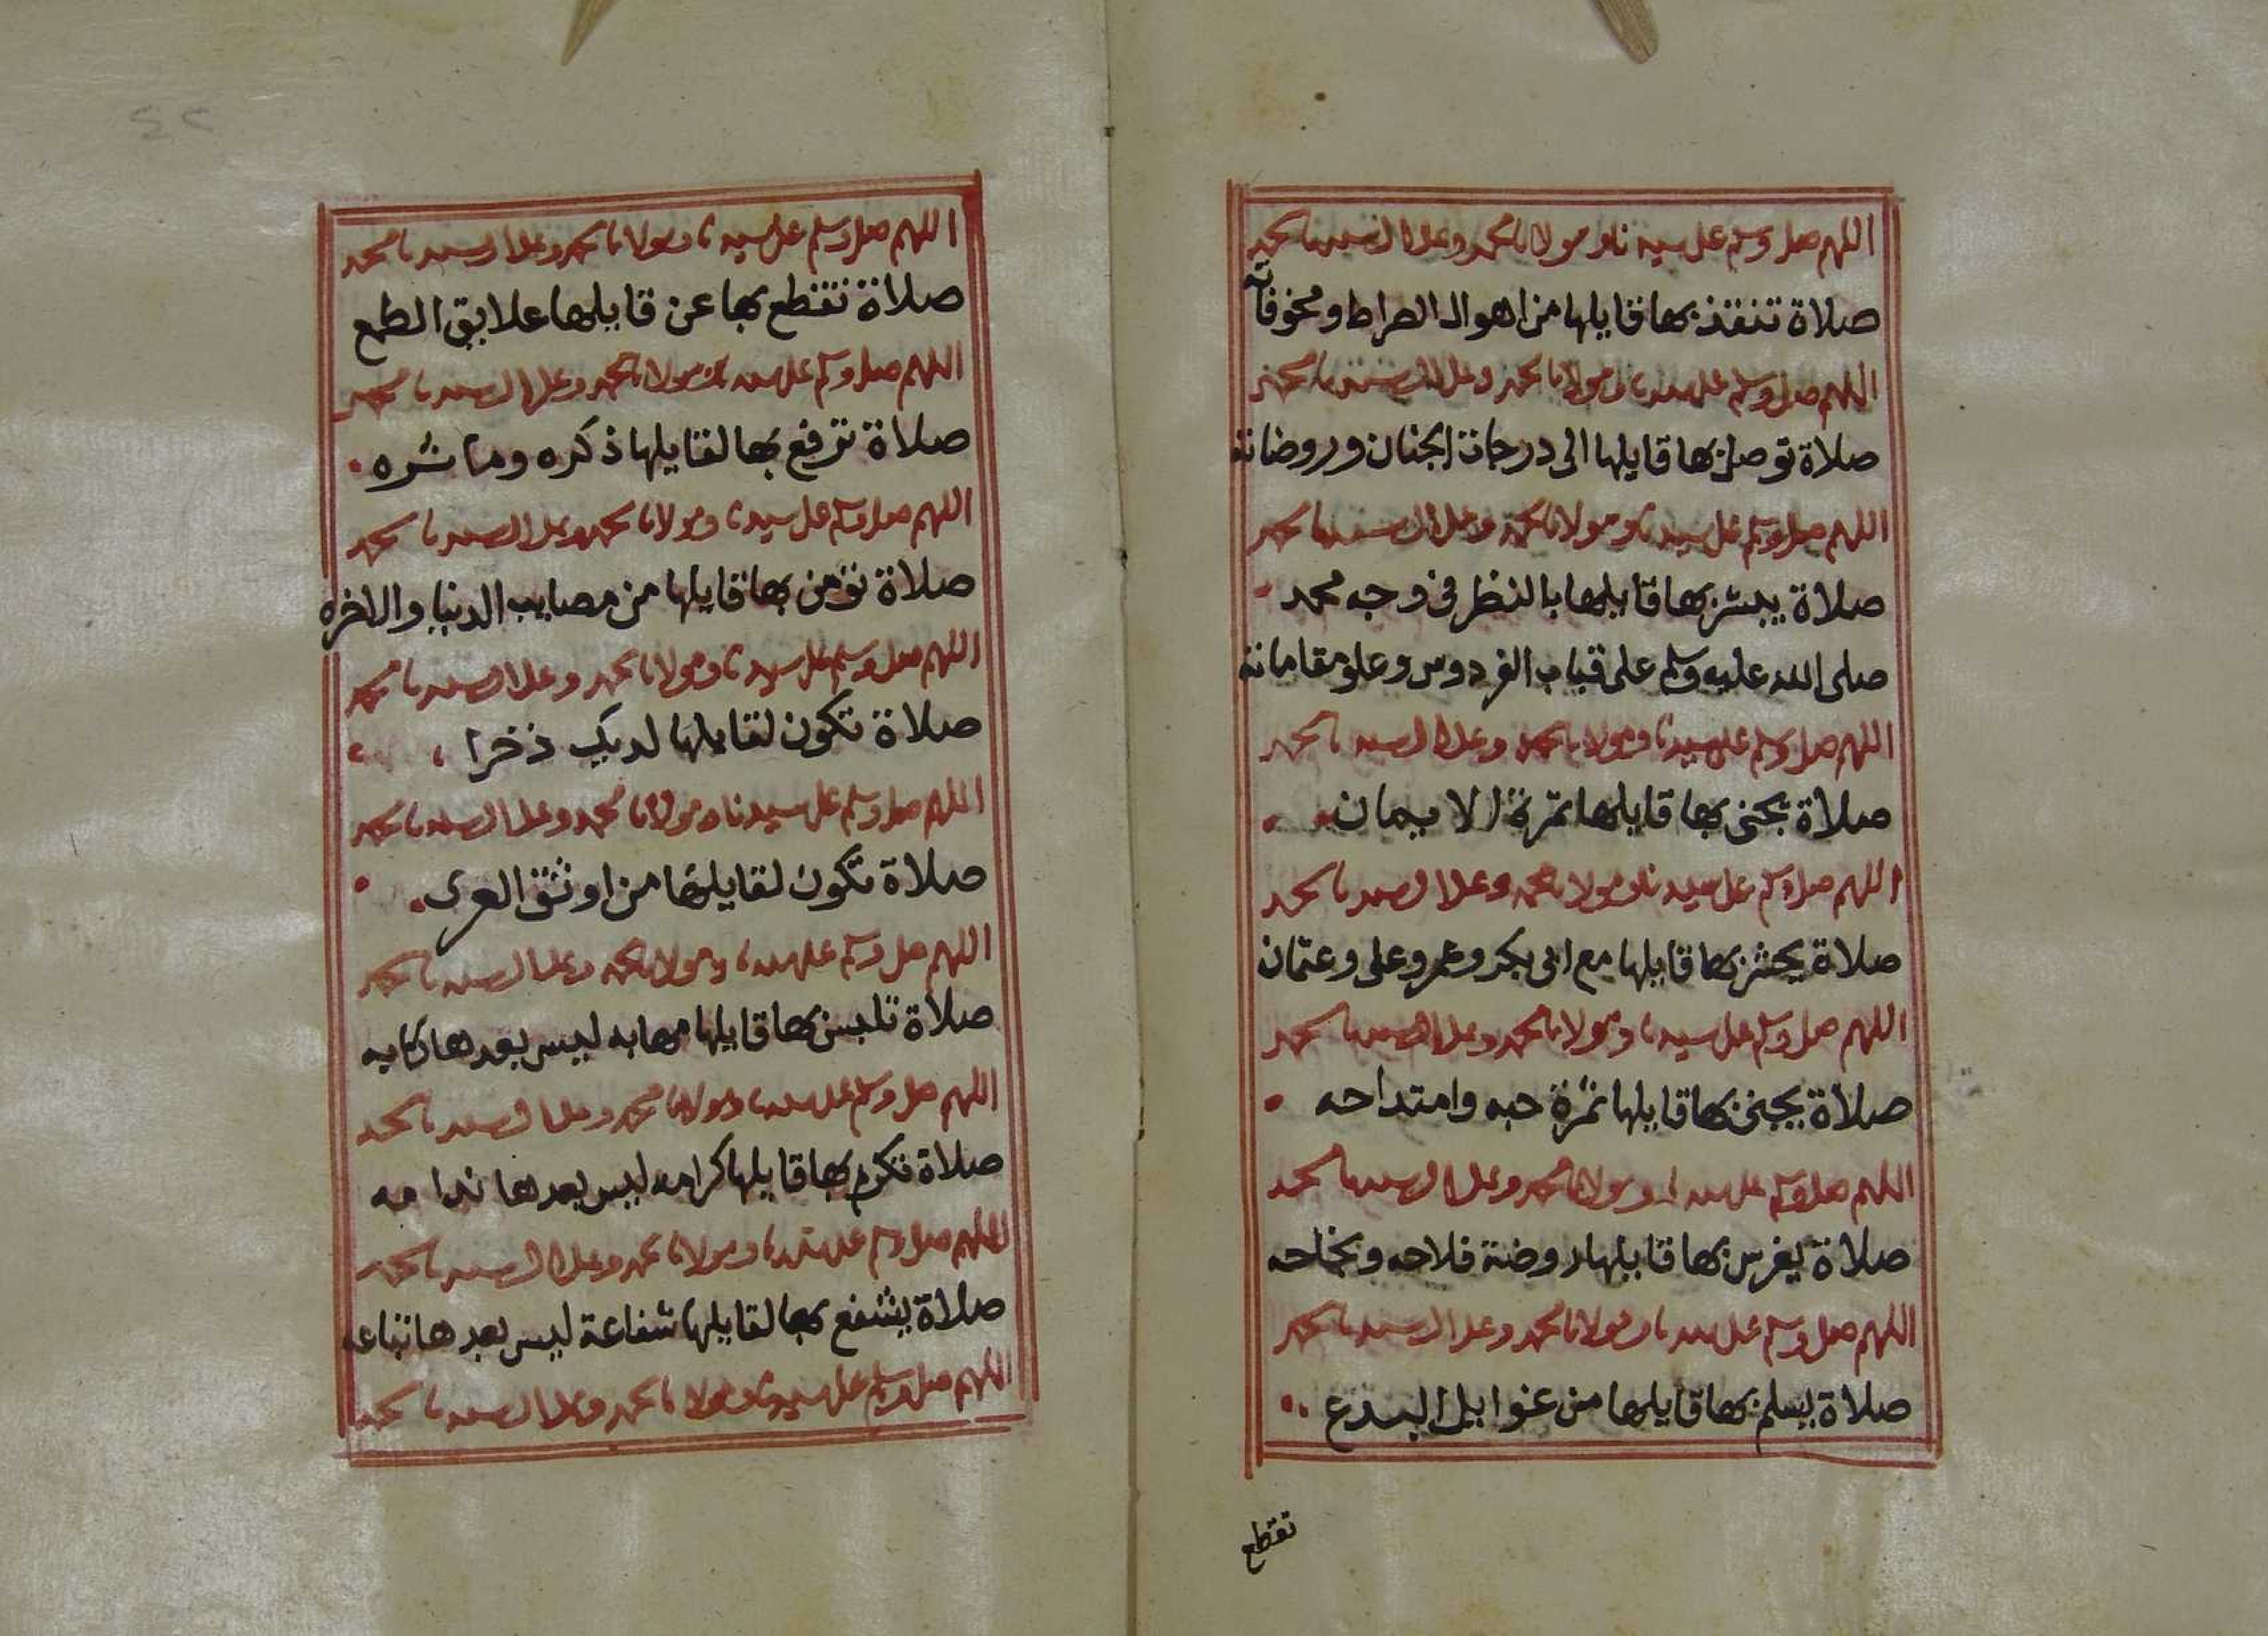 اللهم صل وسلم على سيدنا ومولانا محمد وعلى ال سيدنا محمد
صلاة تنقذ بها قايلها من اهوال الصراط ومخوفاته
اللهم صل وسلم على سيدنا ومولانا محمد وعلى ال سيدنا محمد
صلاة توصل بها قايلها الى درجات الجنان وروضاته
اللهم صل وسلم على سيدنا ومولانا محمد وعلى ال سيدنا محمد
صلاة يبشر بها قايلها بالنظر فى وجه محمد
صلى الله عليه وسلم على قباب الفردوس وعلو مقاماته
اللهم صل وسلم على سيدنا ومولانا محمد وعلى ال سيدنا محمد
صلاة يجنى بها قايلها ثمرة الايمان
اللهم صل وسلم على سيدنا ومولانا محمد وعلى ال سيدنا محمد
صلاة يحشر بها قايلها مع ابى بكر وعمر وعلى وعثمان
اللهم صل وسلم على سيدنا ومولانا محمد وعلى ال سيدنا محمد
صلاة يجنى بها قايلها ثمرة حبه وامتداحه
اللهم صل وسلم على سيدنا ومولانا محمد وعلى ال سيدنا محمد
صلاة يغرس بها قايلها روضة فلاحه ونجاحه
اللهم صل وسلم على سيدنا ومولانا محمد وعلى ال سيدنا محمد
صلاة يسلم بها قايلها من غوايل البدع
تقطع
٤٢
اللهم صل وسلم على سيدنا ومولانا محمد وعلى ال سيدنا محمد
صلاة تقطع بها عن قايلها علايق الطمع
اللهم صل وسلم على سيدنا ومولانا محمد وعلى ال سيدنا محمد
صلاة ترفع بها لقايلها ذكره وماثره
اللهم صل وسلم على سيدنا ومولانا محمد وعلى ال سيدنا محمد
صلاة تؤمن بها قايلها من مصايب الدنيا والاخره
اللهم صل وسلم على سيدنا ومولانا محمد وعلى ال سيدنا محمد
صلاة تكون لقايلها لديك ذخرا
اللهم صل وسلم على سيدنا ومولانا محمد وعلى ال سيدنا محمد
صلاة تكون لقايلها من اوثق العرى
اللهم صل وسلم على سيدنا ومولانا محمد وعلى ال سيدنا محمد
صلاة تلبس بها قايلها مهابه ليس بعدها
اللهم صل وسلم على سيدنا ومولانا محمد وعلى ال سيدنا محمد
صلاة تكرم بها قايلها كرامه ليس بعدها ندامه
اللهم صل وسلم على سيدنا ومولانا محمد وعلى ال سيدنا محمد
صلاة يشفع بها لقايلها شفاعة ليس بعدها
اللهم صل وسلم على سيدنا ومولانا محمد وعلى ال سيدنا محمد